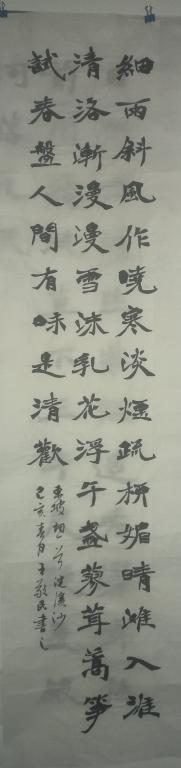 細雨斜風作曉寒淡煙疏柳媚晴灘入淮
清洛漸漫漫雪沫乳花浮午盞蓼茸蒿筍
試春盤人間有味是清歡
東坡想浣溪沙
己亥春月王敬民書之